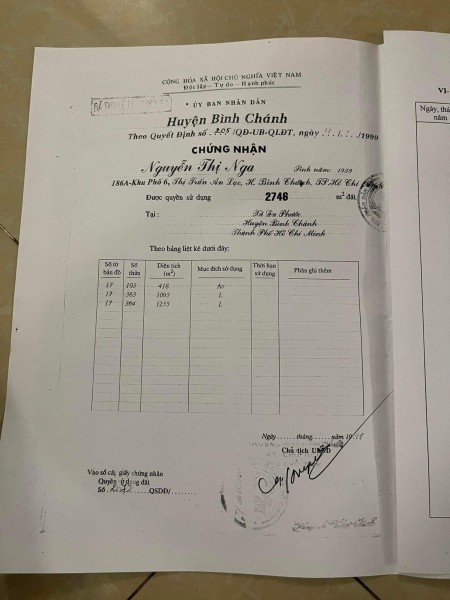 CỘNG HÒA XÃ HỘI CHỦ NGHĨA VIỆT NAM
Độc lập - Tự do - Hạnh phúc
ỦY BAN NHÂN DÂN
Huyện Bình Chánh
Theo Quyết Định số 205/QĐ-UB-QLĐT, ngày 1999
CHỨNG NHẬN
Nguyễn Thị Nga Sinh năm: 1959
186A-Khu Phố 6, Thị Trấn An Lạc, H. Bình Chánh, TP.Hồ Chí
Được quyền sử dụng 2746 m² đất
Tại: Xã Đa Phước
Huyện Bình Chánh
Thành Phố Hồ Chí Minh
Theo bảng liệt kê dưới đây:
Số tờ bản đồ Số thửa Diện tích (m²) Mục đích sử dụng Thời hạn sử dụng Phần ghi thêm
17 103 418 Ao
17 363 1093 L
17 364 1235 L
Ngày......tháng......năm 19
Chủ tịch UBND
Vào sổ cấp giấy chứng nhận
Quyền sử dụng đất
Số QSDĐ/
VI-
Ngày, thá
năm